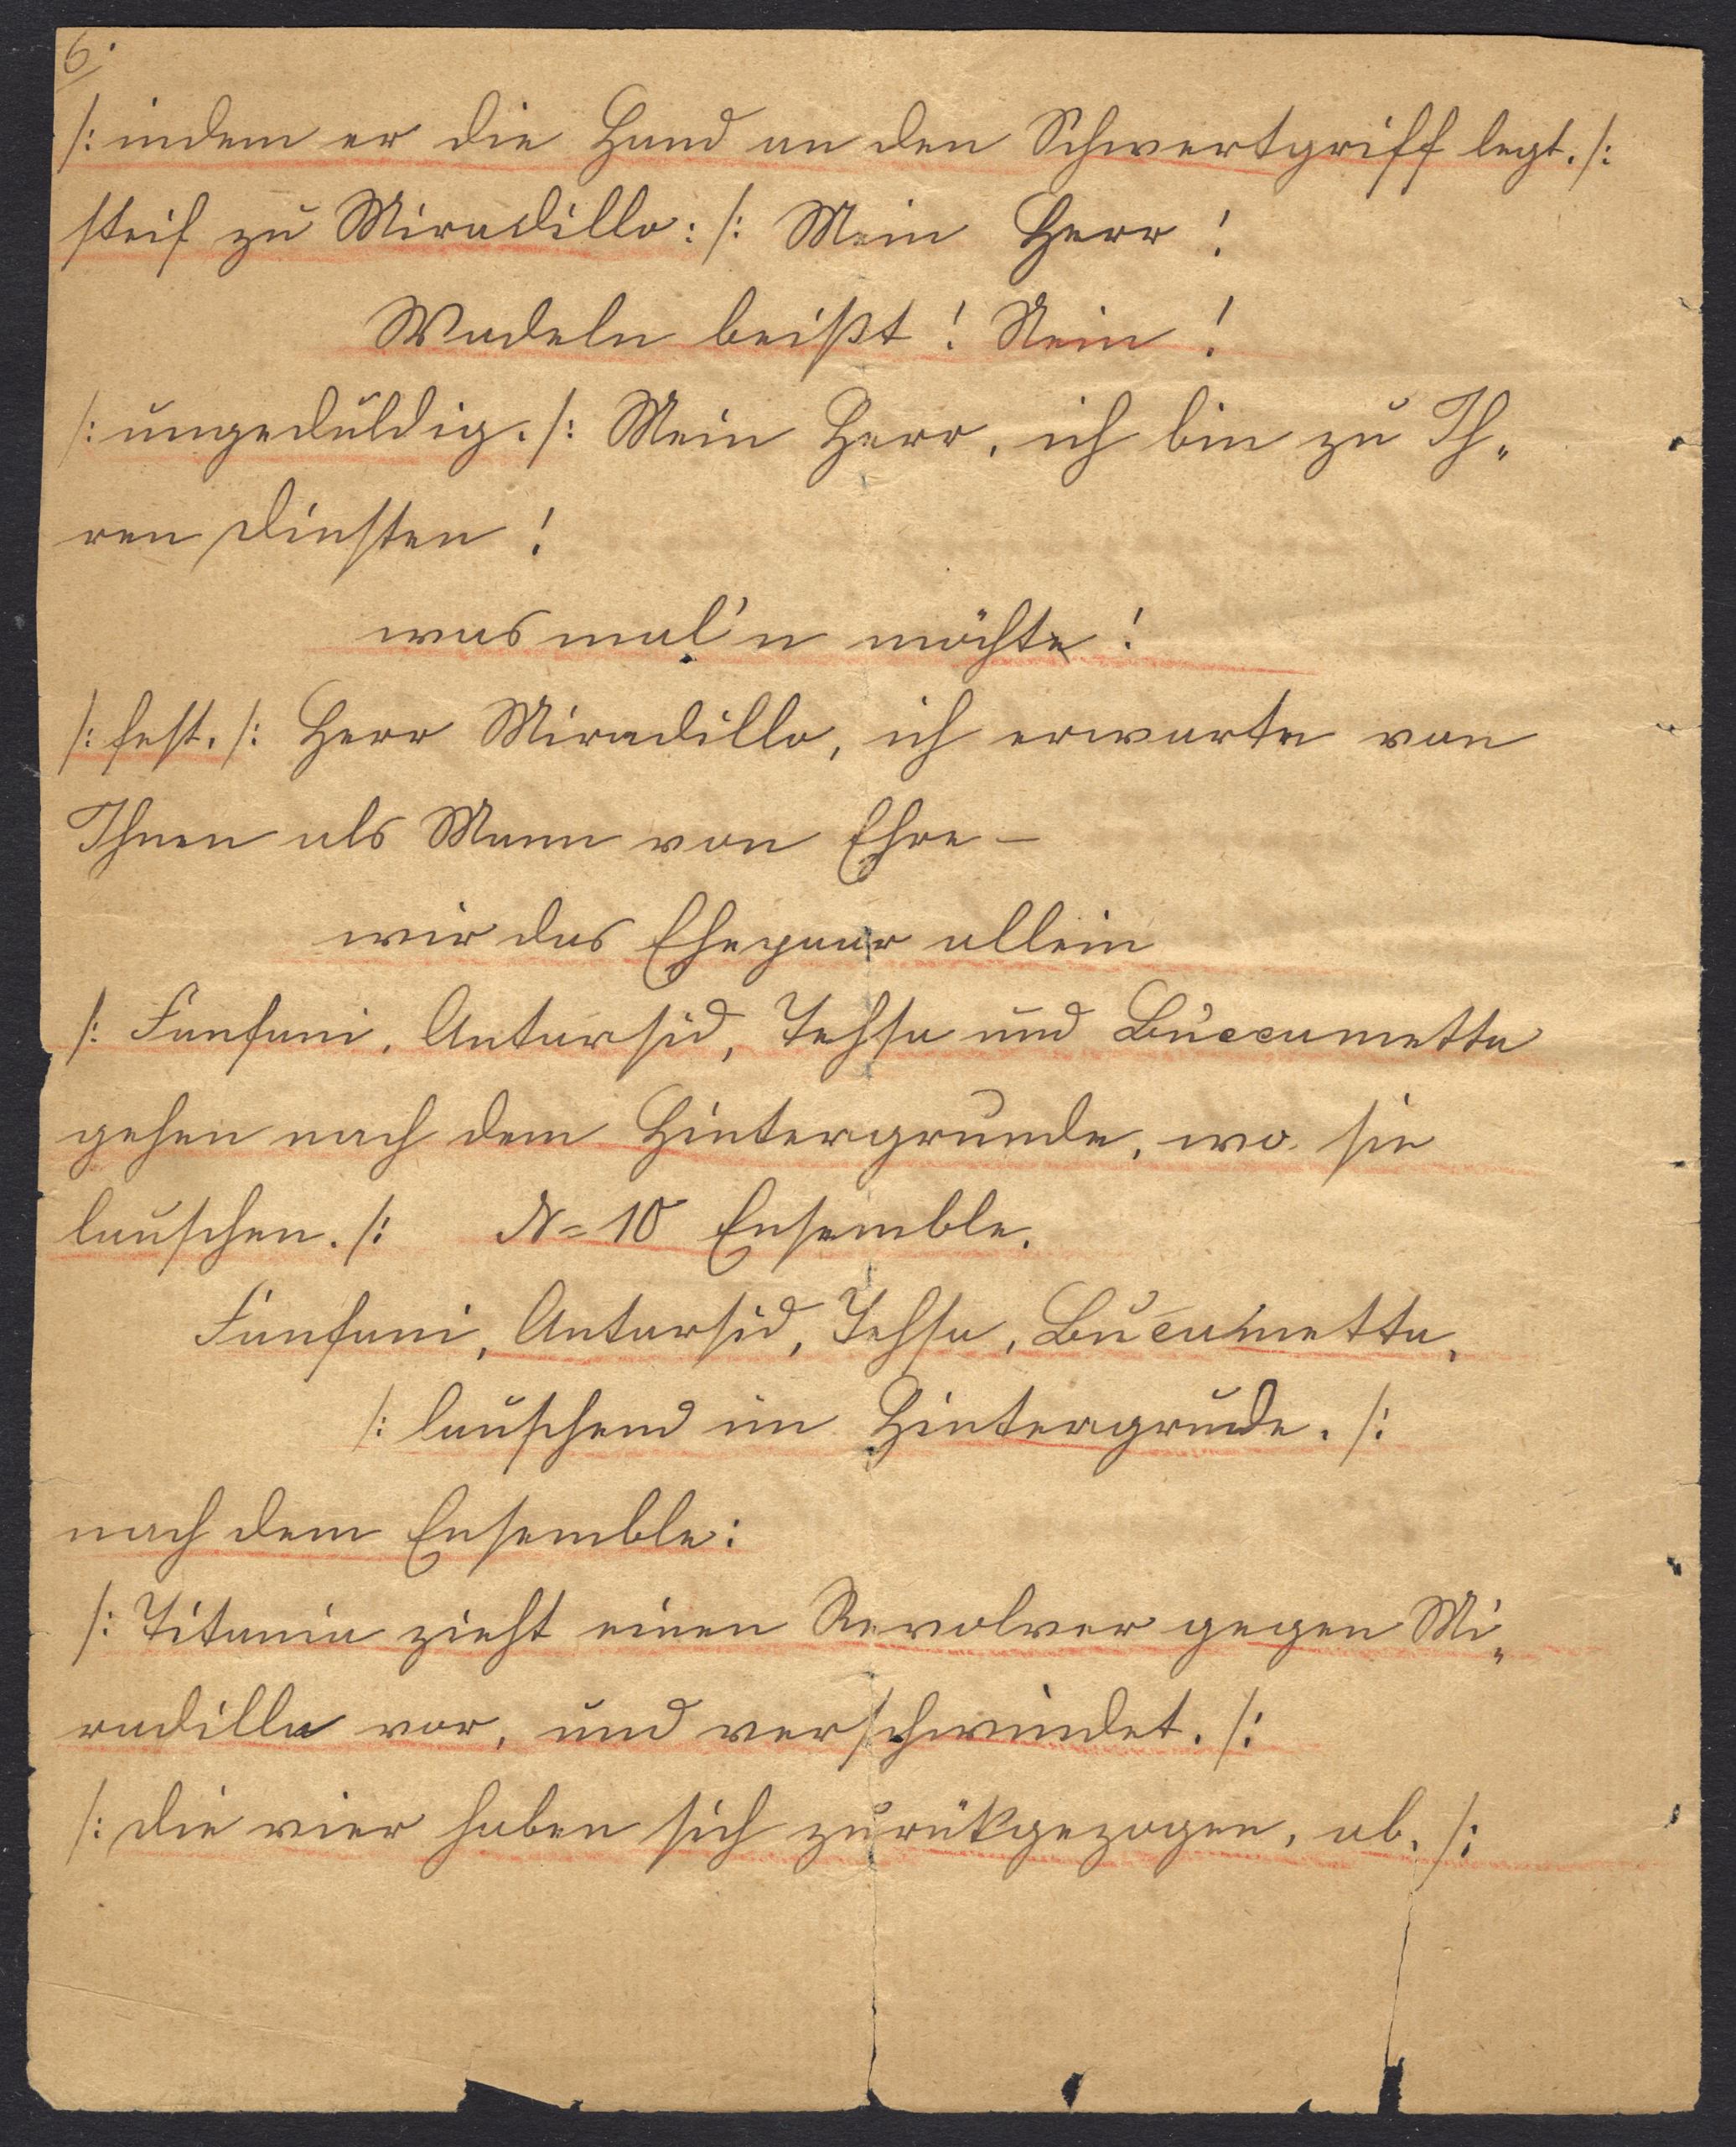 6.
/: indem er die Hand an den Schwertgriff legt. /:
steif zu Miradillo: /: Mein Herr!
Wadeln beißt! Nein!
/: ungeduldig. /: Mein Herr, ich bin zu Ih„
ren Diensten!
was mal'n möchte!
/: fest. /: Herr Miradillo, ich erwarte von
Ihnen als Mann von Ehre –
wir das Ehepaar allein
/: Fanfani, Antarsid, Tessa und Buccametta
gehen nach dem Hintergrunde, wo sie
lauschen. /: N= 10 Ensemble.
Fanfani, Antarsid, Tessa, Bucametta,
/: lauschend im Hintergrude. /:
nach dem Ensemble:
/: Titania zieht einen Revolver gegen Mi„
radillo vor, und verschwindet. /:
/: die vier haben sich zurükgezogen, ab. /: